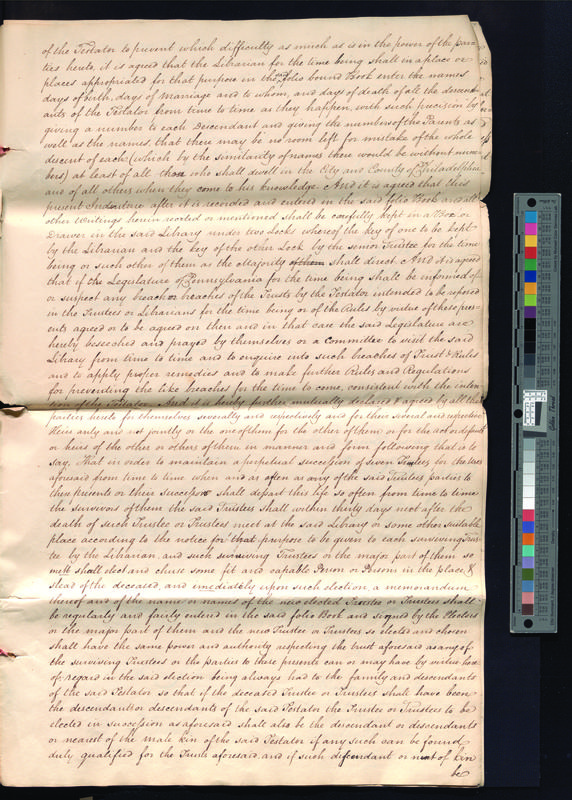 of the Testator to prevent which difficulty as much as is in the power of the par-
ties hereto, it is agreed that the Librarian for the time being shall in a place or
places appropriated for that purpose in the said folio bound Book enter the names
days of birth, days of Marriage and to whom, and days of death of all the descend-
ants of the Testator from time to time as they happen, with such precision by
giving a number to each Descendant and giving the numbers of the Parents as
well as the names, that there may be no room left for mistake of the whole
descent of each (which by the similarity of names there would be without num-
bers) at least of all those who shall dwell in the City and County of Philadelphia
and of all others when they come to his knowledge. And it is agreed that this
present Indenture after it is recorded and entered in the said folio Book and all
other Writings herein recited or mentioned shall be carefully kept in a Box or
Drawer in the said Library under two Locks whereof the key of one to be kept
by the Librarian and the key of the other Lock by the senior Trustee for the time
being or such other of them as the Majority of them shall direct. And it is agreed
that if the Legislature of Pennsylvania for the time being shall be informed of
or suspect any breach or breaches of the Trusts by the Testator intended to be reposed
in the Trustees or Librarians for the time being or of the Rules by virtue of these pres-
ents agreed or to be agreed on then and in that case the said Legislature are
hereby beseeched and prayed by themselves or a Committee to visit the said
Library from time to time and to enquire into such breaches of Trust & Rules
and to apply proper remedies and to make further Rules and Regulations
for preventing the like breaches for the time to come, consistent with the inten-
Testator. And it is hereby further mutually declared & agreed by all the
parties hereto for themselves severally and respectively and for their several and respective
Heirs only and not jointly or the one of them for the other of them or for the act or default
or heirs of the other or others of them in manner and form following that is to
say, That in order to maintain a perpetual succession of seven Trustees for the uses
aforesaid from time to time when and as often as any of the said Trustees parties to
these presents or their successors shall depart this life so often from time to time
the survivors of them the said Trustees shall within thirty days next after the
death of such Trustee or Trustees meet at the said Library or some other suitable
place according to the notice for that purpose to be given to each surviving Trus-
tee by the Librarian, and such surviving Trustees or the major part of them so
met shall elect and chuse some fit and capable Person or Persons in the place &
stead of the deceased, and immediately upon such election a memorandum
thereof and of the name or names of the new elected Trustee or Trustees shall
be regularly and fairly entered in the said folio Book and signed by the Electors
or the major part of them and the new Trustee or Trustees so elected and chosen
shall have the same power and authority respecting the trust aforesaid as any of
the surviving Trustees or the parties to these presents can or may have by virtue here-
of: regard in the said election being always had to the family and descendants
of the said Testator so that if the deceased Trustee or Trustees shall have been
the descendant or descendants of the said Testator the Trustee or Trustees to be
elected in succession as aforesaid shall also be the descendant or descendants
or nearest of the male kin of the said Testator if any such can be found
duly qualified for the Trusts aforesaid, and if such descendant or next of kin
be